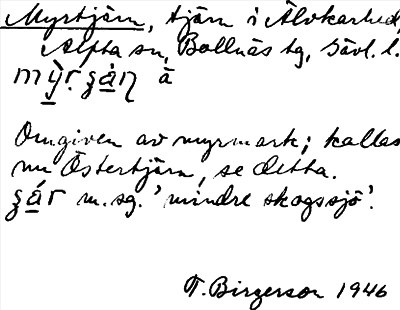 Myrtjärn, tjärn i Älvkarhed,
Alfta sn, Bollnäs tg, Gävl. l.
Omgiven av myrmark; kallas
nu Östertjärn, se detta.
m. sg. 'mindre skogssjö'.
T. Birgerson 1946